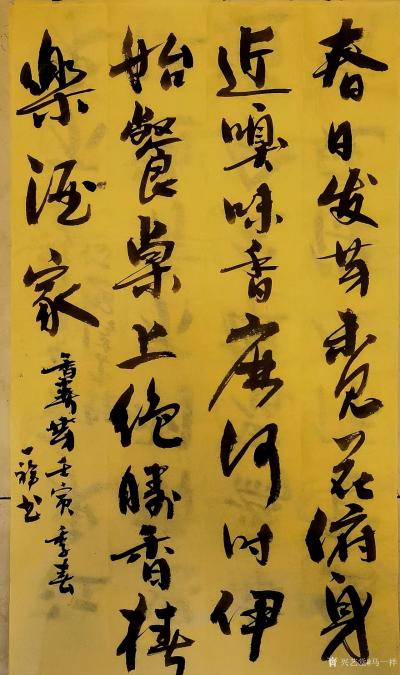 春日发芽未见花俯身
近嗅味香麻何时伊
始餐桌上绝勝香椿
樂酒家
香椿芽壬寅季春
一祥书
兴艺堂#马一祥